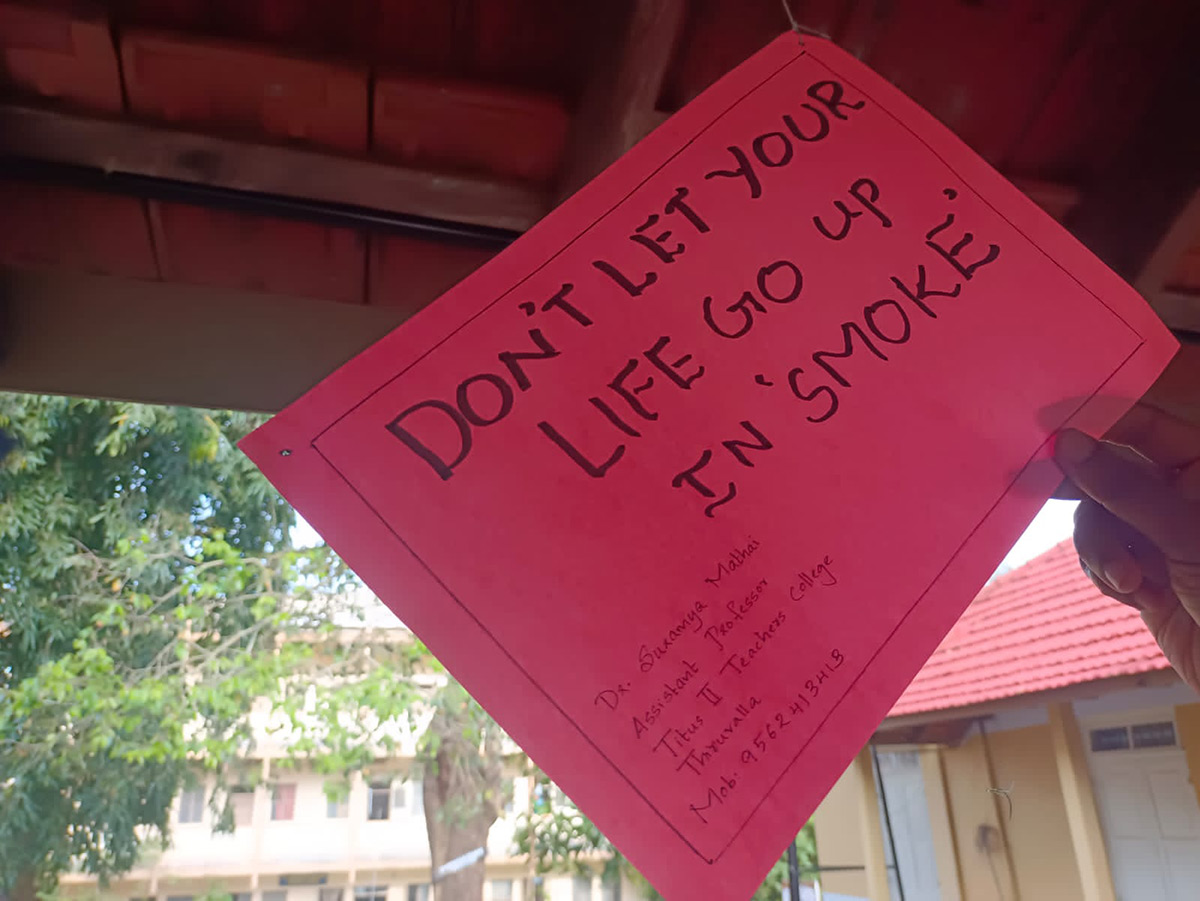 DON'T LET YOUR
LIFE GO UP
IN 'SMOKE'
Dr. Suramya Mathai
Assistant Professor
Titus II Teachers College
Thiruvalla
Mob: 9562413413